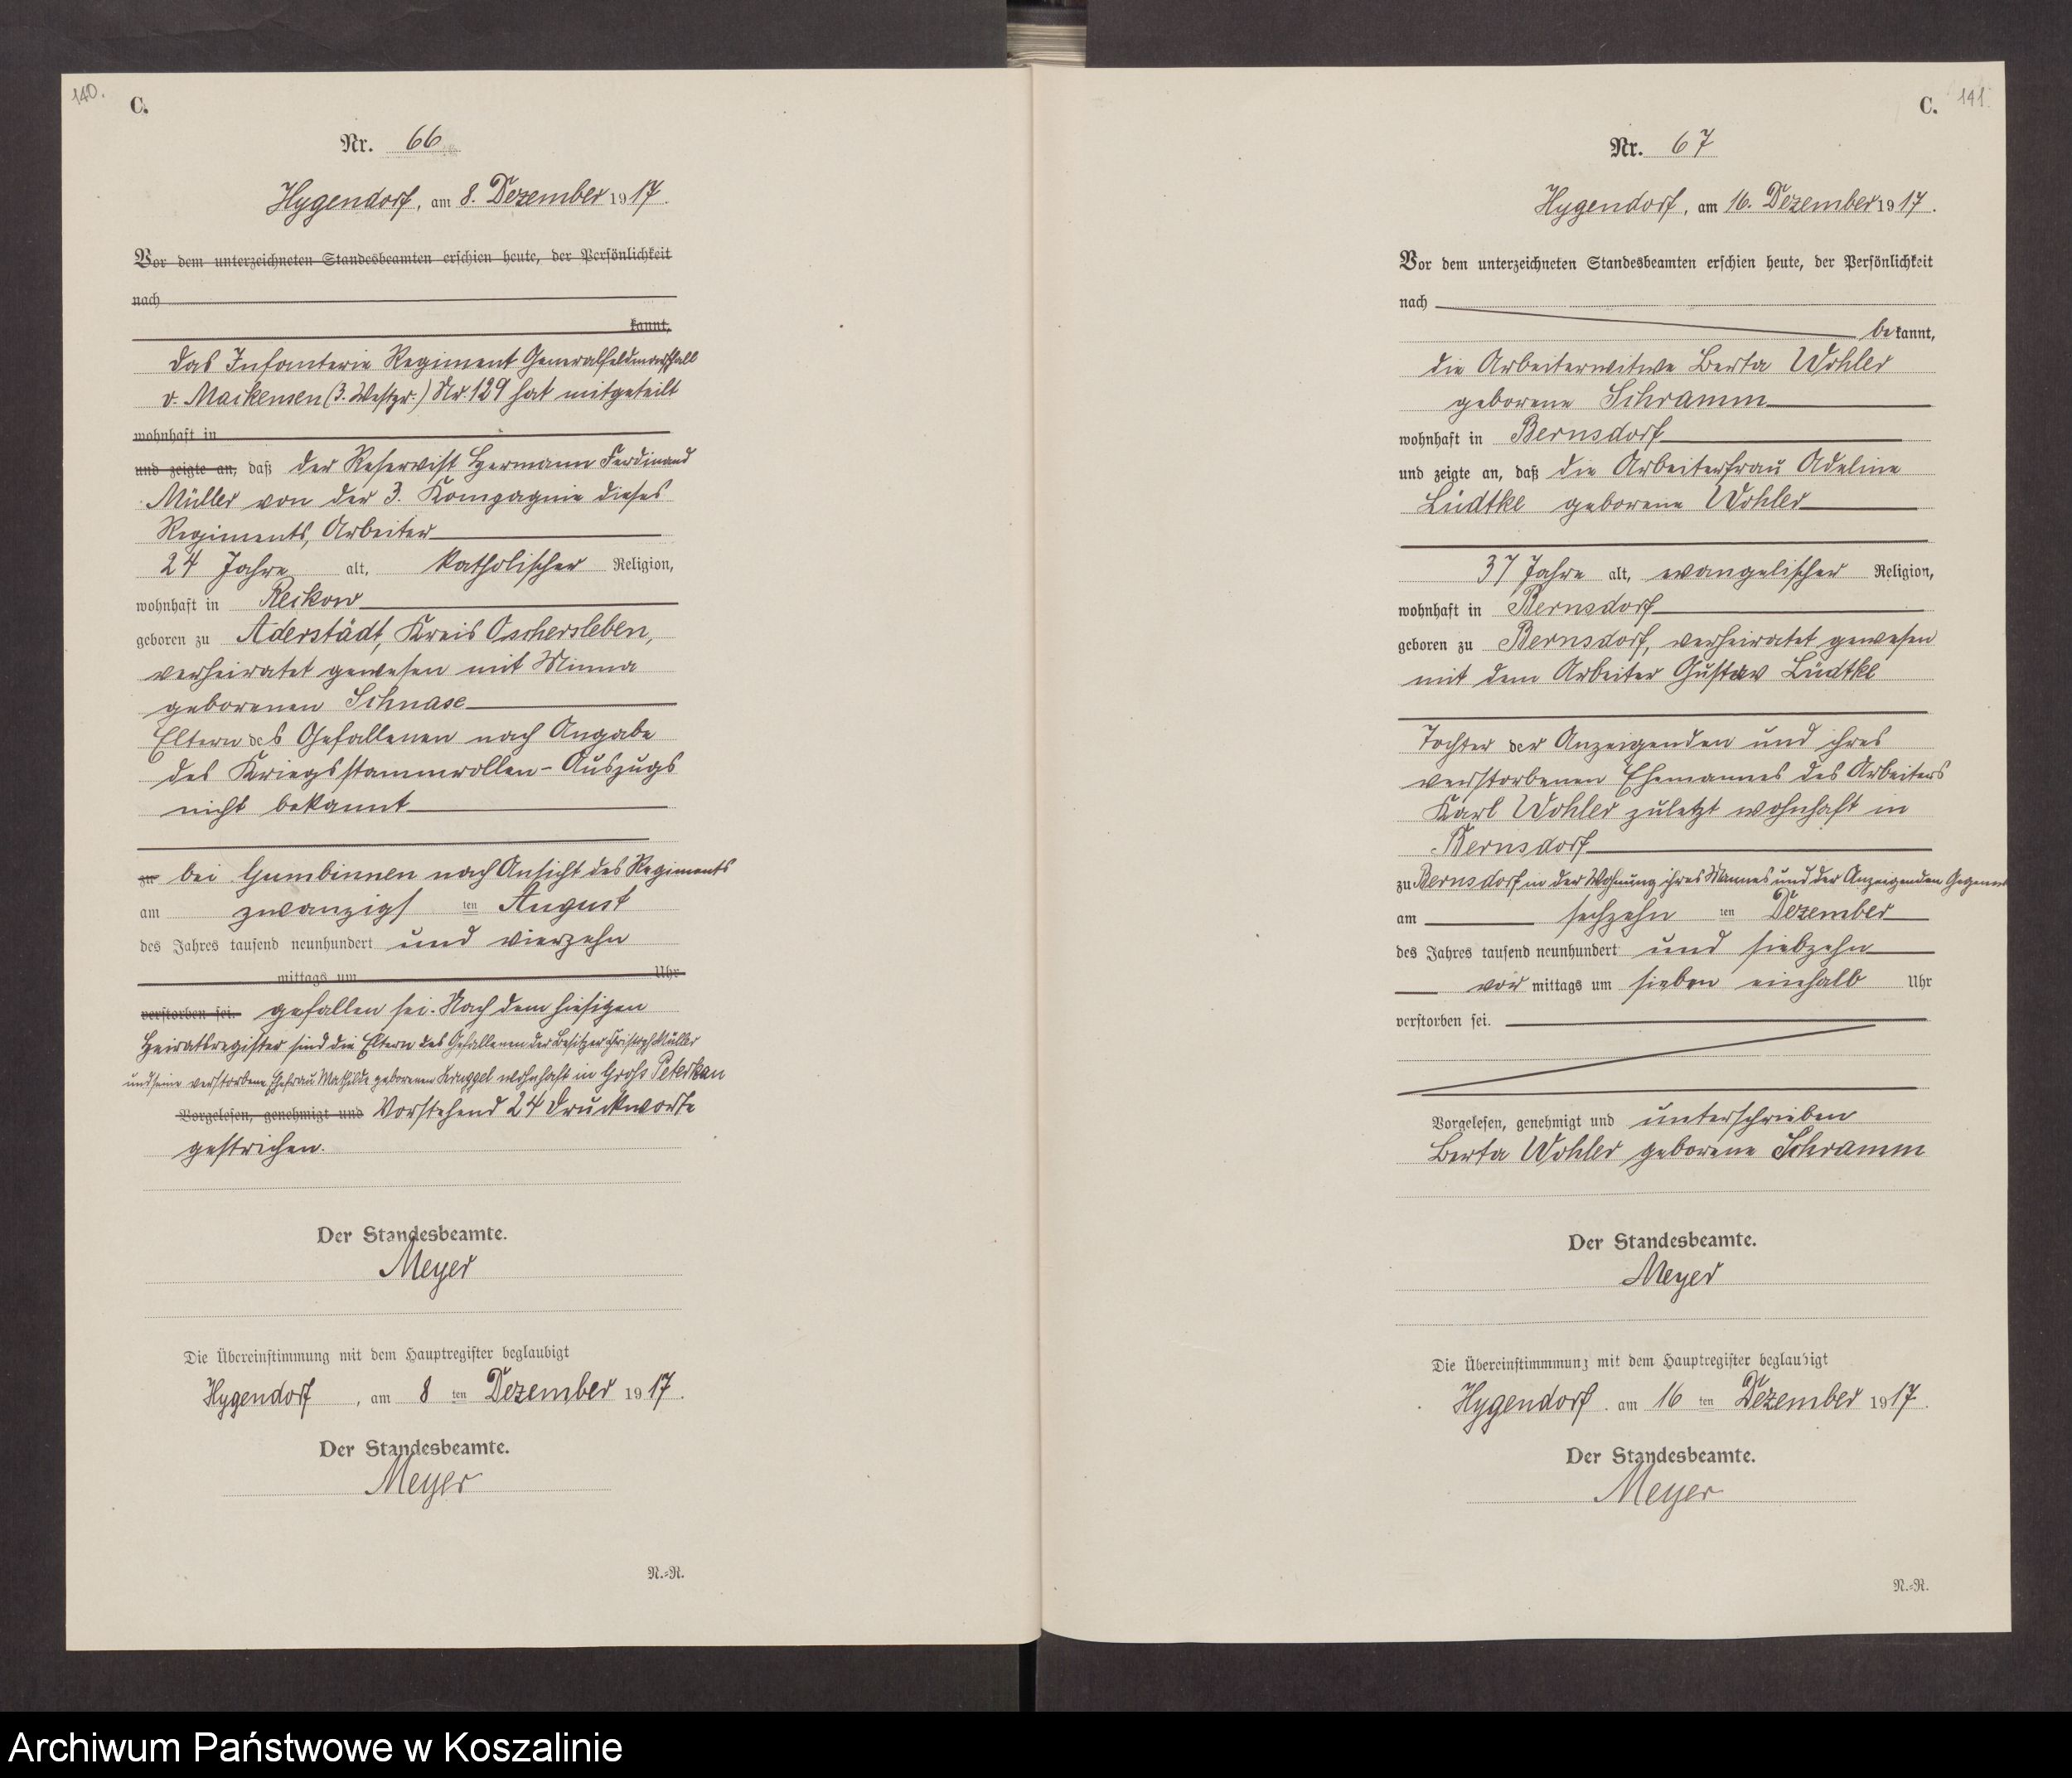 140.
C.
Nr. 66
Hygendorf, am 8. Dezember 1917.
Vor dem unterzeichneten Standesbeamten erschien heute, der Persönlichkeit
nach
kannt,
das Infanterie Regiment Generalfeldmarschall
v. Mackensen (3. Westpr.) Nr. 129 hat mitgeteilt
wohnhaft in
und zeigte an, daß der Reservist Hermann Ferdinand
Müller von der 3. Kompagnie dieses
Regiments, Arbeiter
24 Jahre alt, katholischer Religion,
wohnhaft in Reckow
geboren zu Aderstädt, Kreis Oschersleben,
verheiratet gewesen mit Minna
geborenen Schnase
Eltern des Gefallenen nach Angabe
des Kriegsstammrollen-Auszugs
nicht bekannt
zu bei Gumbinnen nach Ansicht des Regiments
am zwanzigsten August
des Jahres tausend neunhundert und vierzehn
mittags um Uhr
verstorben sei. gefallen sei. Nach dem hiesigen
Heiratsregister sind die Eltern des Gefallenen der Besitzer Christoph Müller
und seine verstorbene Ehefrau Mathilde geborenen wohnhaft in Groß Peterkau
Vorgelesen, genehmigt und Vorstehend 24 Druckworte
gestrichen.
Der Standesbeamte.
Meyer
Die Übereinstimmung mit dem Hauptregister beglaubigt
Hygendorf, am 8 ten Dezember 1917.
Der Standesbeamte.
Meyer
N.-R.
C. 141.
Nr. 67
Hygendorf, am 16. Dezember 1917.
Vor dem unterzeichneten Standesbeamten erschien heute, der Persönlichkeit
nach
bekannt,
die Arbeiterwitwe Berta Wohler
geborene Schramm
wohnhaft in Bernsdorf
und zeigte an, daß die Arbeiterfrau Adeline
Lüdtke geborene Wohler
37 Jahre alt, evangelischer Religion,
wohnhaft in Bernsdorf
geboren zu Bernsdorf, verheiratet gewesen
mit dem Arbeiter Gustav Lüdtke
Tochter der Anzeigenden und ihres
verstorbenen Ehemannes des Arbeiters
Karl Wohler zuletzt wohnhaft in
Bernsdorf
zu Bernsdorf in der Wohnung ihres Mannes und der Anzeigenden Gegenwart
am sechzehn ten Dezember
des Jahres tausend neunhundert und siebzehn
vor mittags um sieben einhalb Uhr
verstorben sei.
Vorgelesen, genehmigt und unterschrieben
Berta Wohler geborene Schramm
Der Standesbeamte.
Meyer
Die Übereinstimmung mit dem Hauptregister beglaubigt
Hygendorf. am 16 ten Dezember 1917.
Der Standesbeamte.
Meyer
N.-R.
Archiwum Państwowe w Koszalinie